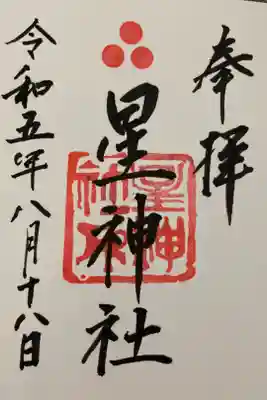 奉拝
星神社
星神
社印
令和五年八月十八日